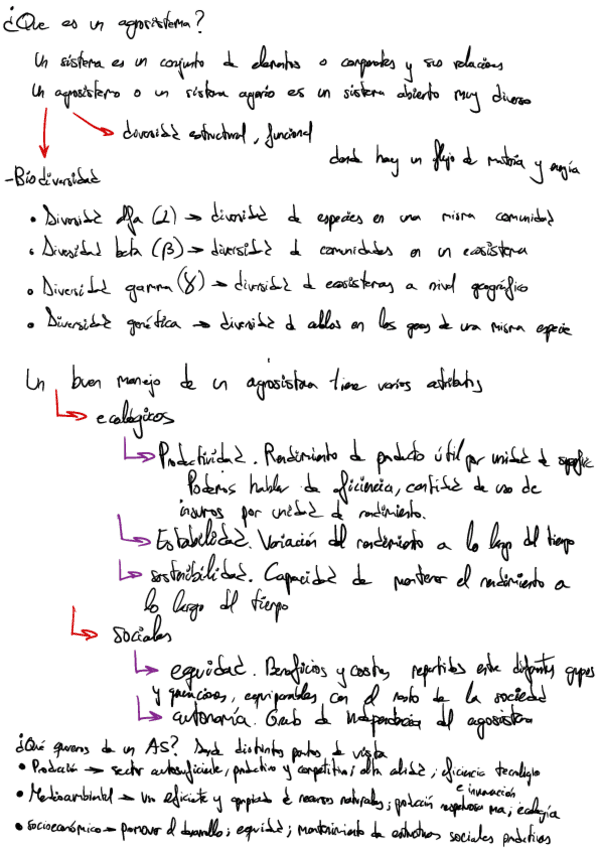 ¿Que es un agrosistema?
Un sistema es un conjunto de elementos o componentes y sus relaciones
Un agrosistema o un sistema agrario es un sistema abierto muy diverso
diversidad estructural, funcional
donde hay un flujo de materia y energía
-Biodiversidad
• Diversidad alfa (α) → diversidad de especies en una misma comunidad
• Diversidad beta (β) → diversidad de comunidades en un ecosistema
• Diversidad gamma (γ) → diversidad d ecosistemas a nivel geográfico
• Diversidad genética → diversidad d alelos en los genes de una misma especie
Un buen manejo de un agrosistema tiene varios atributos
ecológicos
Productividad. Rendimiento de producto útil por unidad de superficie
Podemos hablar de eficiencia, cantidad de uso de
insumos por unidad d rendimiento.
Estabilidad. Variación del rendimiento a lo largo del tiempo
sostenibilidad. Capacidad de mantener el rendimiento a
lo largo del tiempo
sociales
equidad. Beneficios y costes repartidos entre diferentes grupos
y generaciones, equiparables con el resto de la sociedad
autonomía. Grado de independencia del agrosistema
¿Qué queremos de un AS? Desde distintos puntos de vista
• Producción → sector autosuficiente, productivo y competitivo; alta calidad; eficiencia tecnológica
e innovación
• Medioambiental → uso eficiente y de recursos naturales; producción respetuosa ma; ecología
• socioeconómico → promover el desarrollo; equidad; mantenimiento de estructuras sociales productivas